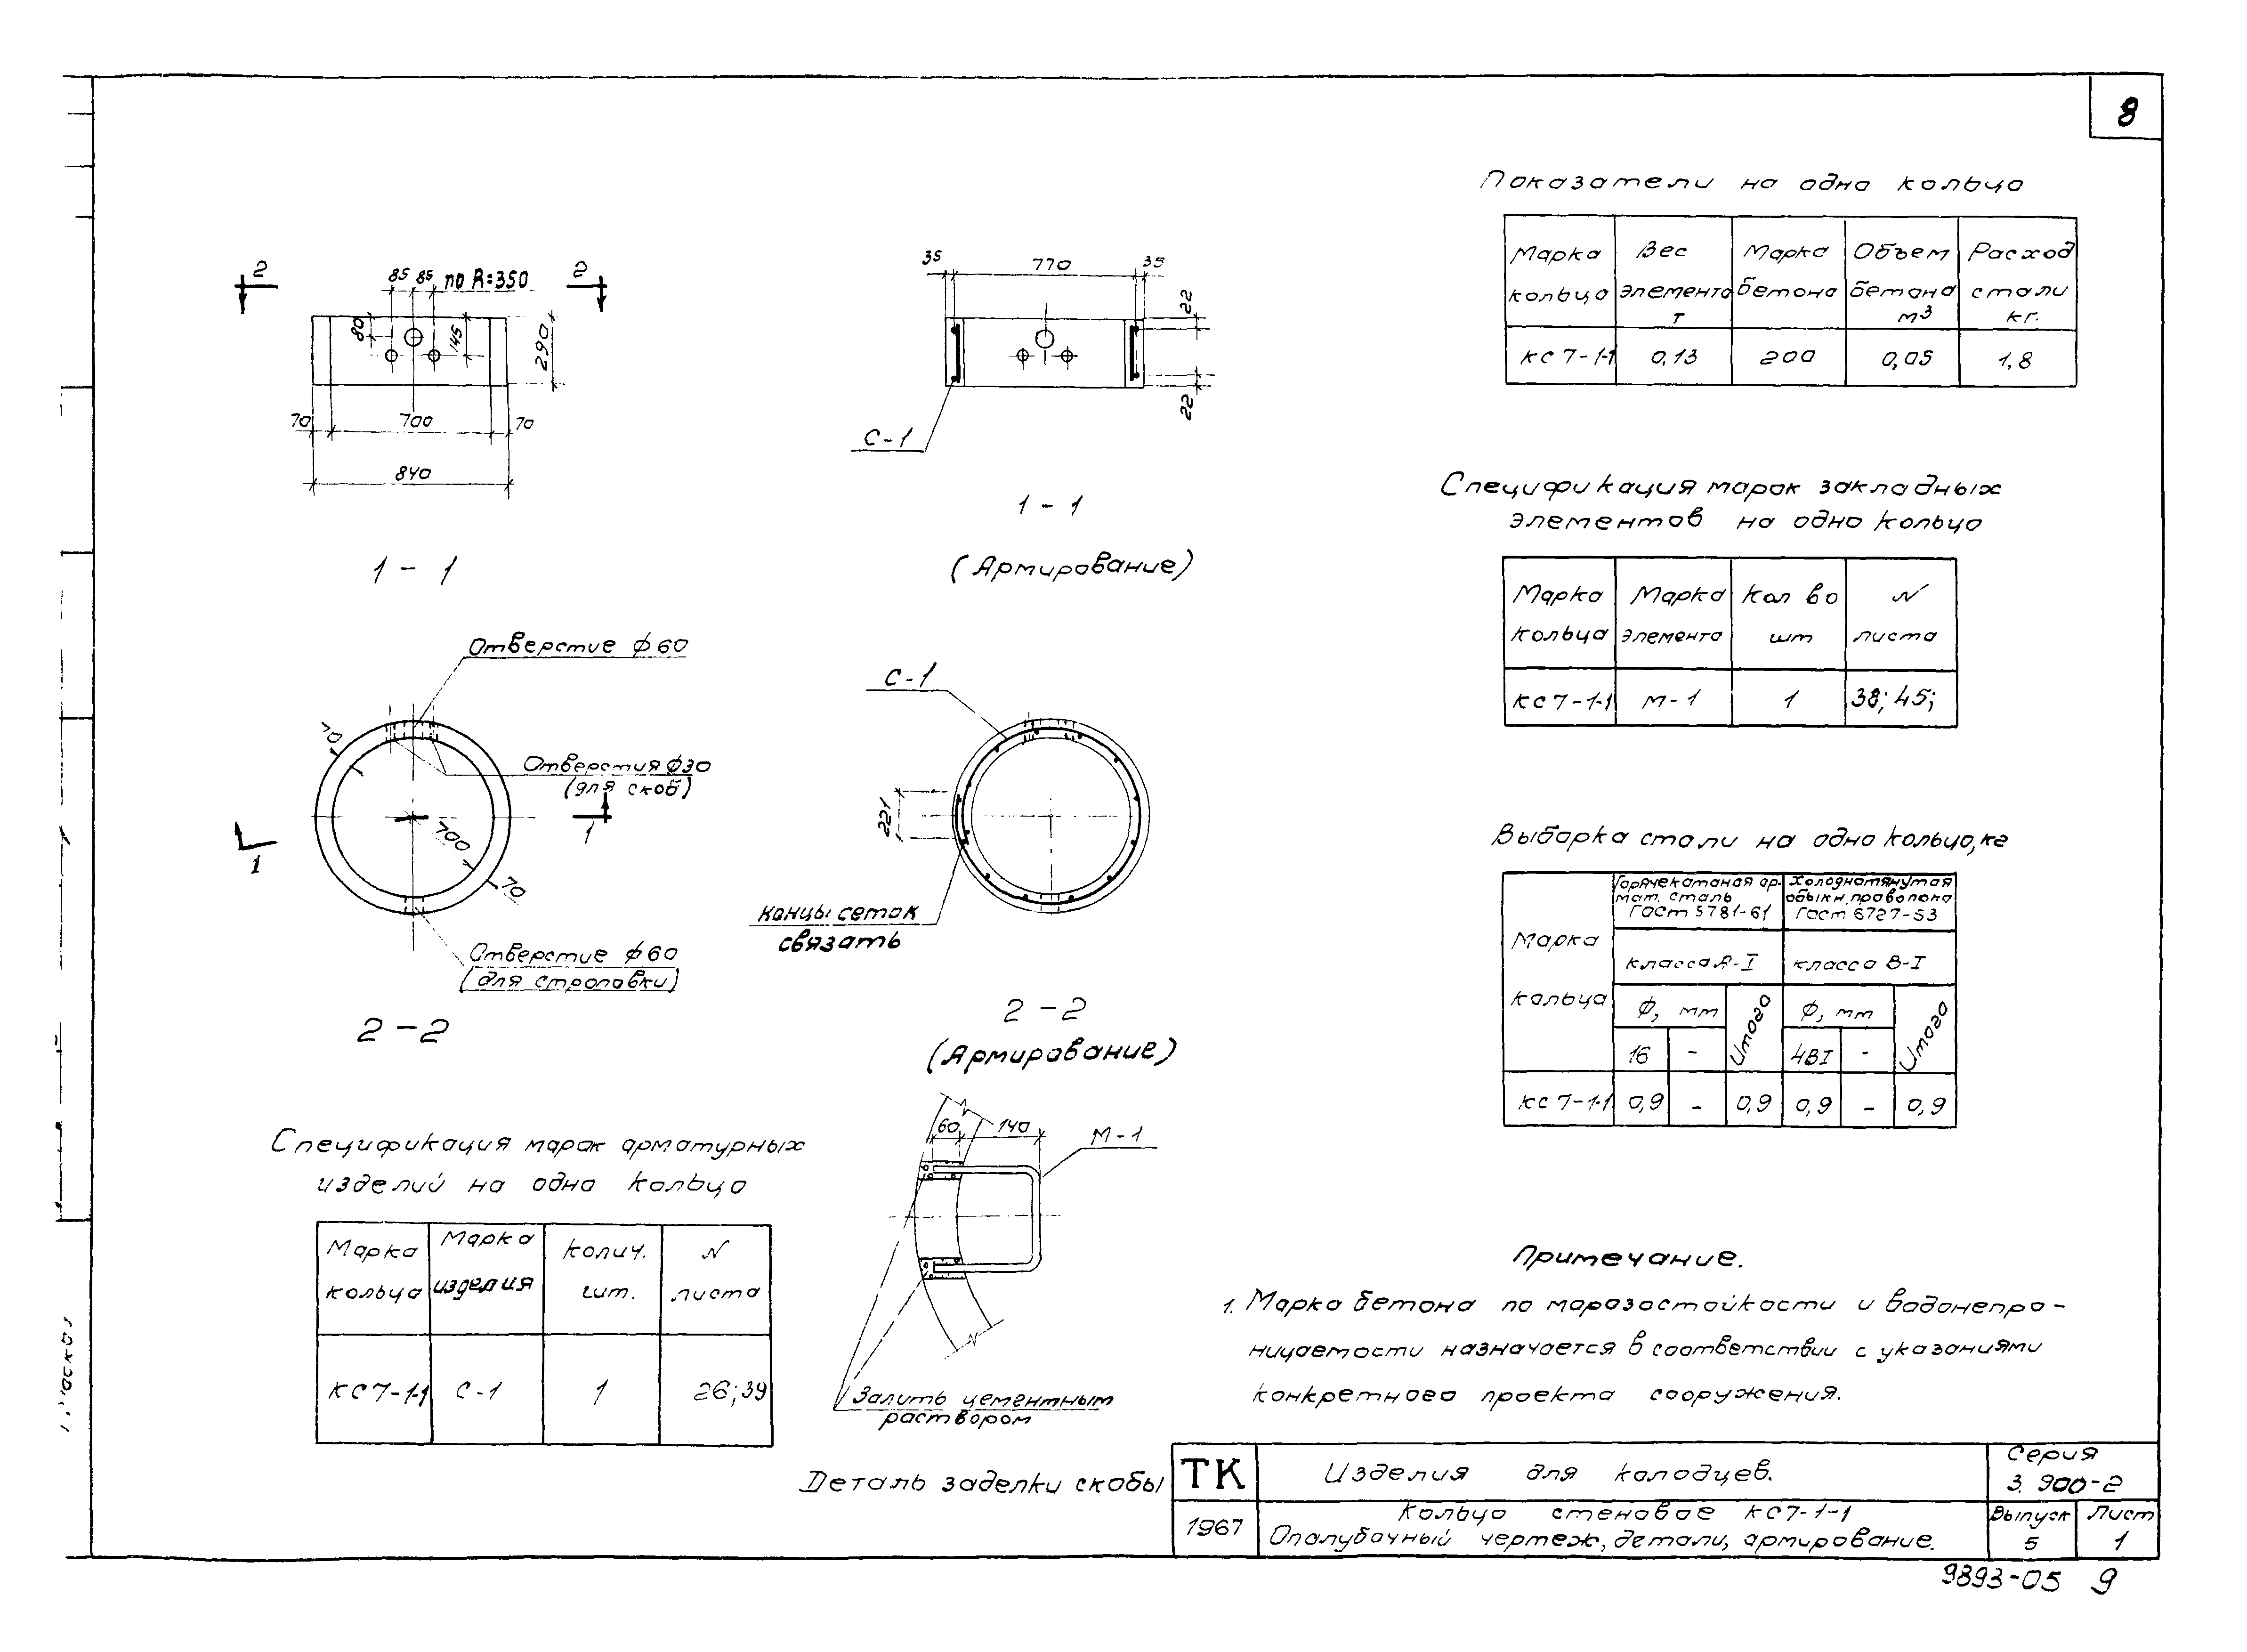 8
2
85 85 по R=350
2
80
145
290
70
700
70
840
1 - 1
35
770
35
22
22
С-1
1 - 1
(Армирование)
Отверстие ф60
70
Отверстия ф30
(для скоб)
1
1
700
70
Отверстие ф60
(для строповки)
2 - 2
С-1
221
Концы сеток
связать
2 - 2
(Армирование)
60
140
М-1
Залить цементным
раствором
Деталь заделки скобы
Спецификация марок арматурных
изделий на одно кольцо
Марка кольца
Марка изделия
Колич. шт.
N листа
КС7-1-1
С-1
1
26;39
Показатели на одно кольцо
Марка кольца
Вес элемента т
Марка бетона
Объем бетона м3
Расход стали кг.
КС7-1-1
0,13
200
0,05
1,8
Спецификация марок закладных
элементов на одно кольцо
Марка кольца
Марка элемента
Кол во шт
N листа
КС7-1-1
М-1
1
38; 45;
Выборка стали на одно кольцо, кг
Марка кольца
Горячекатаная ар-
мат. сталь
ГОСТ 5781-61
Холоднотянутая
обыкн. проволока
ГОСТ 6727-53
класса А-I
класса В-I
Ф, мм
Итого
Ф, мм
Итого
16
-
4ВI
-
КС7-1-1
0,9
-
0,9
0,9
-
0,9
Примечание.
1. Марка бетона по морозостойкости и водонепро-
ницаемости назначается в соответствии с указаниями
конкретного проекта сооружения.
ТК
Изделия для колодцев.
Серия
3.900-2
1967
Кольцо стеновое КС7-1-1
Опалубочный чертеж, детали, армирование.
Выпуск
5
Лист
1
9893-05 9